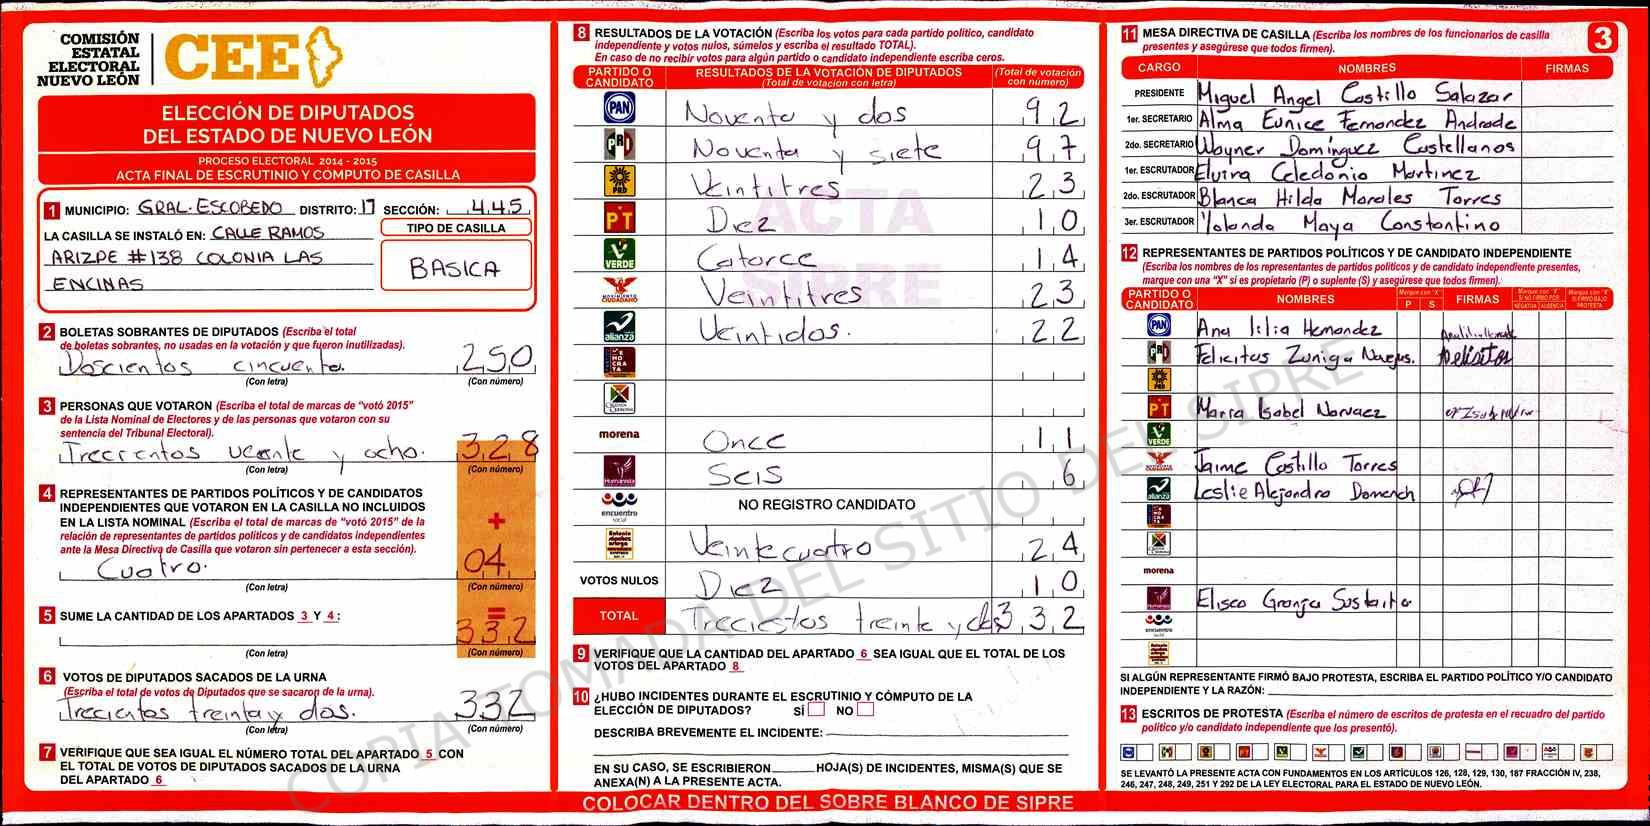 COMISIÓN
ESTATAL
ELECTORAL
NUEVO LEÓN
CEE
ELECCIÓN DE DIPUTADOS
DEL ESTADO DE NUEVO LEÓN
PROCESO ELECTORAL 2014 - 2015
ACTA FINAL DE ESCRUTINIO Y CÓMPUTO DE CASILLA
1 MUNICIPIO: GRAL. ESCOBEDO DISTRITO: 17 SECCIÓN: 445
LA CASILLA SE INSTALÓ EN: CALLE RAMOS
ARIZPE #138 COLONIA LAS
ENCINAS
TIPO DE CASILLA
BASICA
2 BOLETAS SOBRANTES DE DIPUTADOS (Escriba el total
de boletas sobrantes, no usadas en la votación y que fueron inutilizadas).
Doscientos cincuenta. 250
(Con letra) (Con número)
3 PERSONAS QUE VOTARON (Escriba el total de marcas de "votó 2015"
de la Lista Nominal de Electores y de las personas que votaron con su
sentencia del Tribunal Electoral).
Trecientos veinte y ocho. 328
(Con letra) (Con número)
4 REPRESENTANTES DE PARTIDOS POLÍTICOS Y DE CANDIDATOS
INDEPENDIENTES QUE VOTARON EN LA CASILLA NO INCLUIDOS
EN LA LISTA NOMINAL (Escriba el total de marcas de "votó 2015" de la
relación de representantes de partidos políticos y de candidatos independientes
ante la Mesa Directiva de Casilla que votaron sin pertenecer a esta sección).
+
Cuatro. 04
(Con letra) (Con número)
5 SUME LA CANTIDAD DE LOS APARTADOS 3 Y 4:
=
332
(Con letra) (Con número)
6 VOTOS DE DIPUTADOS SACADOS DE LA URNA
(Escriba el total de votos de Diputados que se sacaron de la urna).
Trecientos treinta y dos. 332
(Con letra) (Con número)
7 VERIFIQUE QUE SEA IGUAL EL NÚMERO TOTAL DEL APARTADO 5 CON
EL TOTAL DE VOTOS DE DIPUTADOS SACADOS DE LA URNA
DEL APARTADO 6
8 RESULTADOS DE LA VOTACIÓN (Escriba los votos para cada partido político, candidato
independiente y votos nulos, súmelos y escriba el resultado TOTAL).
En caso de no recibir votos para algún partido o candidato independiente escriba ceros.
PARTIDO O CANDIDATO RESULTADOS DE LA VOTACIÓN DE DIPUTADOS (Total de votación con letra) (Total de votación con número)
PAN Noventa y dos 92
PRI Noventa y siete 97
PRD Veintitres 23
PT Diez 10
VERDE Catorce 14
MOVIMIENTO CIUDADANO Veintitres 23
alianza Veintidos. 22
morena Once 11
Humanista Seis 6
encuentro social NO REGISTRO CANDIDATO
Veinte cuatro 24
VOTOS NULOS Diez 10
TOTAL Treciestos treinta y dos 332
ACTA
SIPRE
9 VERIFIQUE QUE LA CANTIDAD DEL APARTADO 6 SEA IGUAL QUE EL TOTAL DE LOS
VOTOS DEL APARTADO 8
10 ¿HUBO INCIDENTES DURANTE EL ESCRUTINIO Y CÓMPUTO DE LA
ELECCIÓN DE DIPUTADOS? SÍ NO
DESCRIBA BREVEMENTE EL INCIDENTE:
EN SU CASO, SE ESCRIBIERON HOJA(S) DE INCIDENTES, MISMA(S) QUE SE
ANEXA(N) A LA PRESENTE ACTA.
COLOCAR DENTRO DEL SOBRE BLANCO DE SIPRE
11 MESA DIRECTIVA DE CASILLA (Escriba los nombres de los funcionarios de casilla
presentes y asegúrese que todos firmen).
3
CARGO NOMBRES FIRMAS
PRESIDENTE Miguel Angel Castillo Salazar
1er. SECRETARIO Alma Eunice Fernandez Andrade
2do. SECRETARIO Wayner Dominguez Castellanos
1er. ESCRUTADOR Elvira Celedonio Martinez
2do. ESCRUTADOR Blanca Hilda Morales Torres
3er. ESCRUTADOR Yolanda Maya Constantino
12 REPRESENTANTES DE PARTIDOS POLÍTICOS Y DE CANDIDATO INDEPENDIENTE
(Escriba los nombres de los representantes de partidos políticos y de candidato independiente presentes,
marque con una "X" si es propietario (P) o suplente (S) y asegúrese que todos firmen).
PARTIDO O CANDIDATO NOMBRES P S FIRMAS
PAN Ana lilia Hernandez
PRI Felicitas Zuniga
PRD
PT Maria Isabel Narvaez
VERDE
Jaime Castillo Torres
alianza Leslie Alejandra Domench
morena
Eliseo Granja Sustaita
encuentro social
SI ALGÚN REPRESENTANTE FIRMÓ BAJO PROTESTA, ESCRIBA EL PARTIDO POLÍTICO Y/O CANDIDATO
INDEPENDIENTE Y LA RAZÓN:
13 ESCRITOS DE PROTESTA (Escriba el número de escritos de protesta en el recuadro del partido
político y/o candidato independiente que los presentó).
SE LEVANTÓ LA PRESENTE ACTA CON FUNDAMENTOS EN LOS ARTÍCULOS 126, 128, 129, 130, 187 FRACCIÓN IV, 238,
246, 247, 248, 249, 251 Y 292 DE LA LEY ELECTORAL PARA EL ESTADO DE NUEVO LEÓN.
COPIA TOMADA DEL SITIO DEL SIPRE